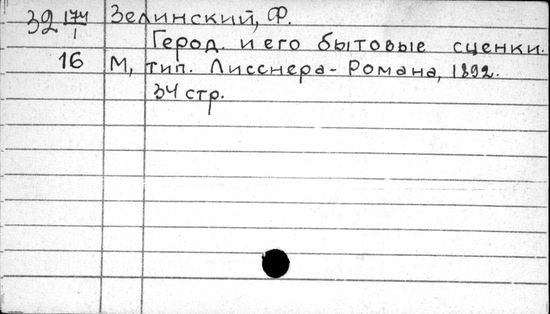 32 174/1 Зелинский, Ф.
Герод. и его бытовые сценки.
16 М, тип. Лисснера-Романа, 1892.
34 стр.